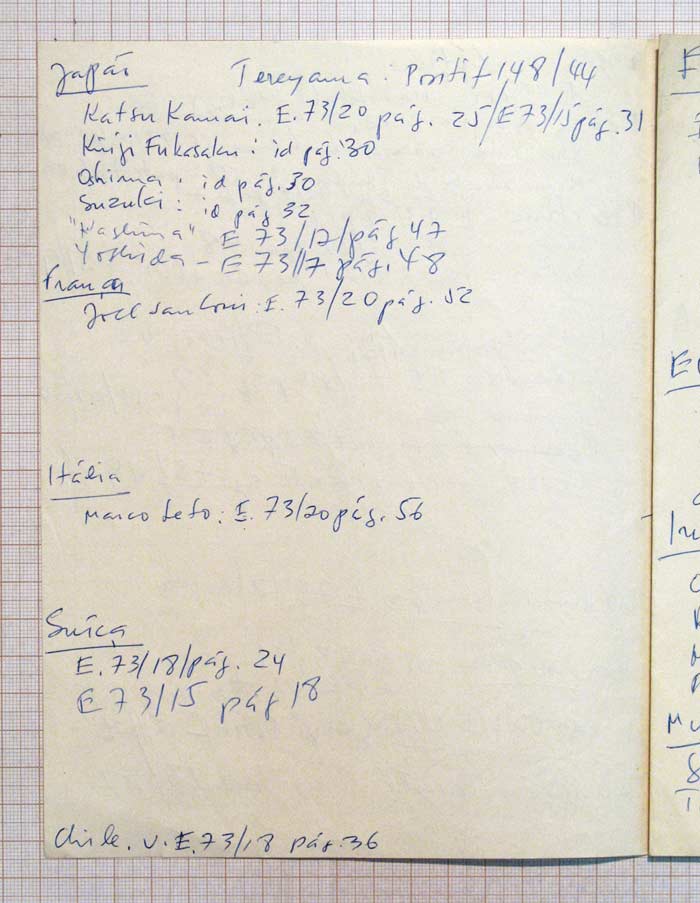 Japão Tereyama: Positif 148/44
Katsu Kanai. E. 73/20 pág. 25/E 73/15 pág. 31
Kinji Fukasaku: id pág. 30
Oshima: id pág. 30
Suzuki: id pág 32
E 73/17/pág 47
Yoshida - E 73/17 pág. 48
França
Joel San : E. 73/20 pág. 52
Itália
Marco Leto: E. 73/20 pág. 56
Suíça
E. 73/18/pág. 24
E 73/15 pág 18
Chile. v. E. 73/18 pág. 36